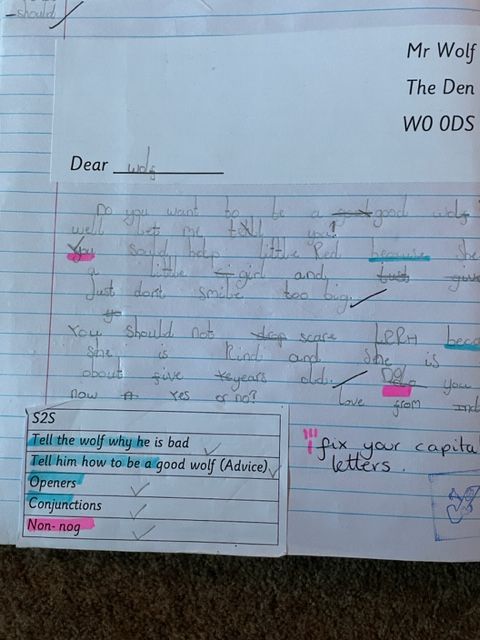 should
Mr Wolf
The Den
WO ODS
Dear wolf
Do you want to be a good good wolf
well let me tell you?
You sould help little Red because she
a little girl and just give
Just dont smile too big.
You should not scare LRRH beca
She is kind and she is
about five years old. Do you
now Yes or no?
Love from
S2S
Tell the wolf why he is bad
Tell him how to be a good wolf (Advice)
Openers
Conjunctions
Non-nog
fix your capita
letters.